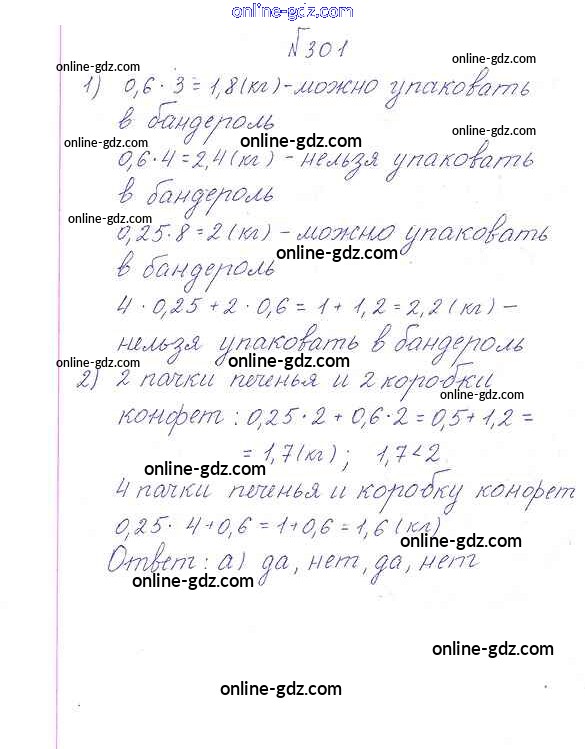 online-gdz.com
№301
online-gdz.com
online-gdz.com
1) 0,6 · 3 = 1,8(кг) - можно упаковать
в бандероль
online-gdz.com
online-gdz.com
online-gdz.com
0,6 · 4 = 2,4(кг) - нельзя упаковать
online-gdz.com
в бандероль
online-gdz.com
0,25 · 8 = 2(кг) - можно упаковать
online-gdz.com
в бандероль
4 · 0,25 + 2 · 0,6 = 1 + 1,2 = 2,2(кг) -
нельзя упаковать в бандероль
online-gdz.com
online-gdz.com
2) 2 пачки печенья и 2 коробки
online-gdz.com
конфет : 0,25 · 2 + 0,6 · 2 = 0,5 + 1,2 =
= 1,7(кг) ; 1,7 < 2.
online-gdz.com
4 пачки печенья и коробку конфет
0,25 · 4 + 0,6 = 1 + 0,6 = 1,6(кг)
online-gdz.com
Ответ : а) да, нет, да, нет
online-gdz.com
online-gdz.com
online-gdz.com